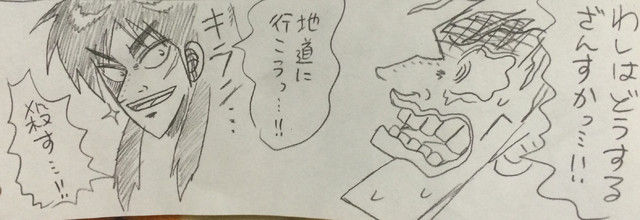 わしはどうする
ざんすかっ…!!
地道に
行こうっ…!!
キラン…
殺す…!!